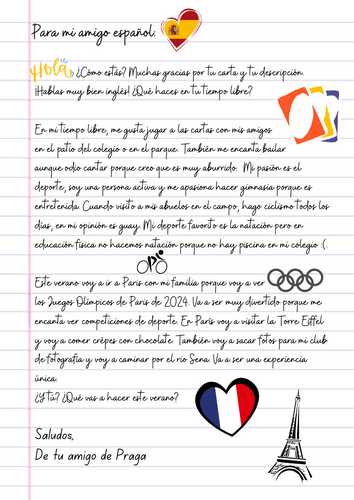 Para mi amigo español:
¡Hola! ¿Cómo estás? Muchas gracias por tu carta y tu descripción.
¡Hablas muy bien inglés! ¿Qué haces en tu tiempo libre?
En mi tiempo libre, me gusta jugar a las cartas con mis amigos
en el patio del colegio o en el parque. También me encanta bailar
aunque odio cantar porque creo que es muy aburrido. Mi pasión es el
deporte, soy una persona activa y me apasiona hacer gimnasia porque es
entretenida. Cuando visito a mis abuelos en el campo, hago ciclismo todos los
días, en mi opinión es guay. Mi deporte favorito es la natación pero en
educación física no hacemos natación porque no hay piscina en mi colegio :(.
Este verano voy a ir a París con mi familia porque voy a ver
los Juegos Olímpicos de París de 2024. Va a ser muy divertido porque me
encanta ver competiciones de deporte. En París voy a visitar la Torre Eiffel
y voy a comer crêpes con chocolate. También voy a sacar fotos para mi club
de fotografía y voy a caminar por el río Sena. Va a ser una experiencia
única.
¿Y tú? ¿Qué vas a hacer este verano?
Saludos,
De tu amigo de Praga